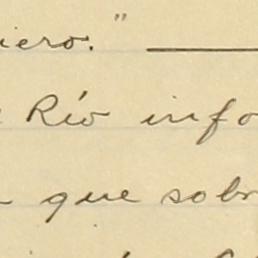 iero."
Río info
que sobr